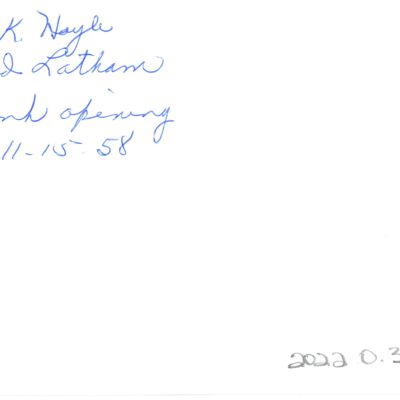 K. Hoyle
d Latham
nk opening
11-15-58
2022 0.3